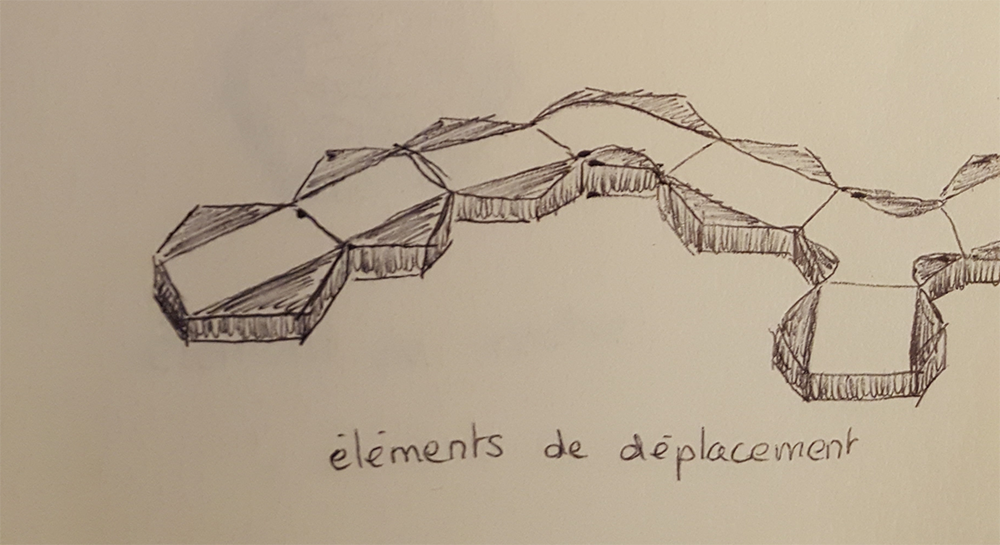 éléments de déplacement